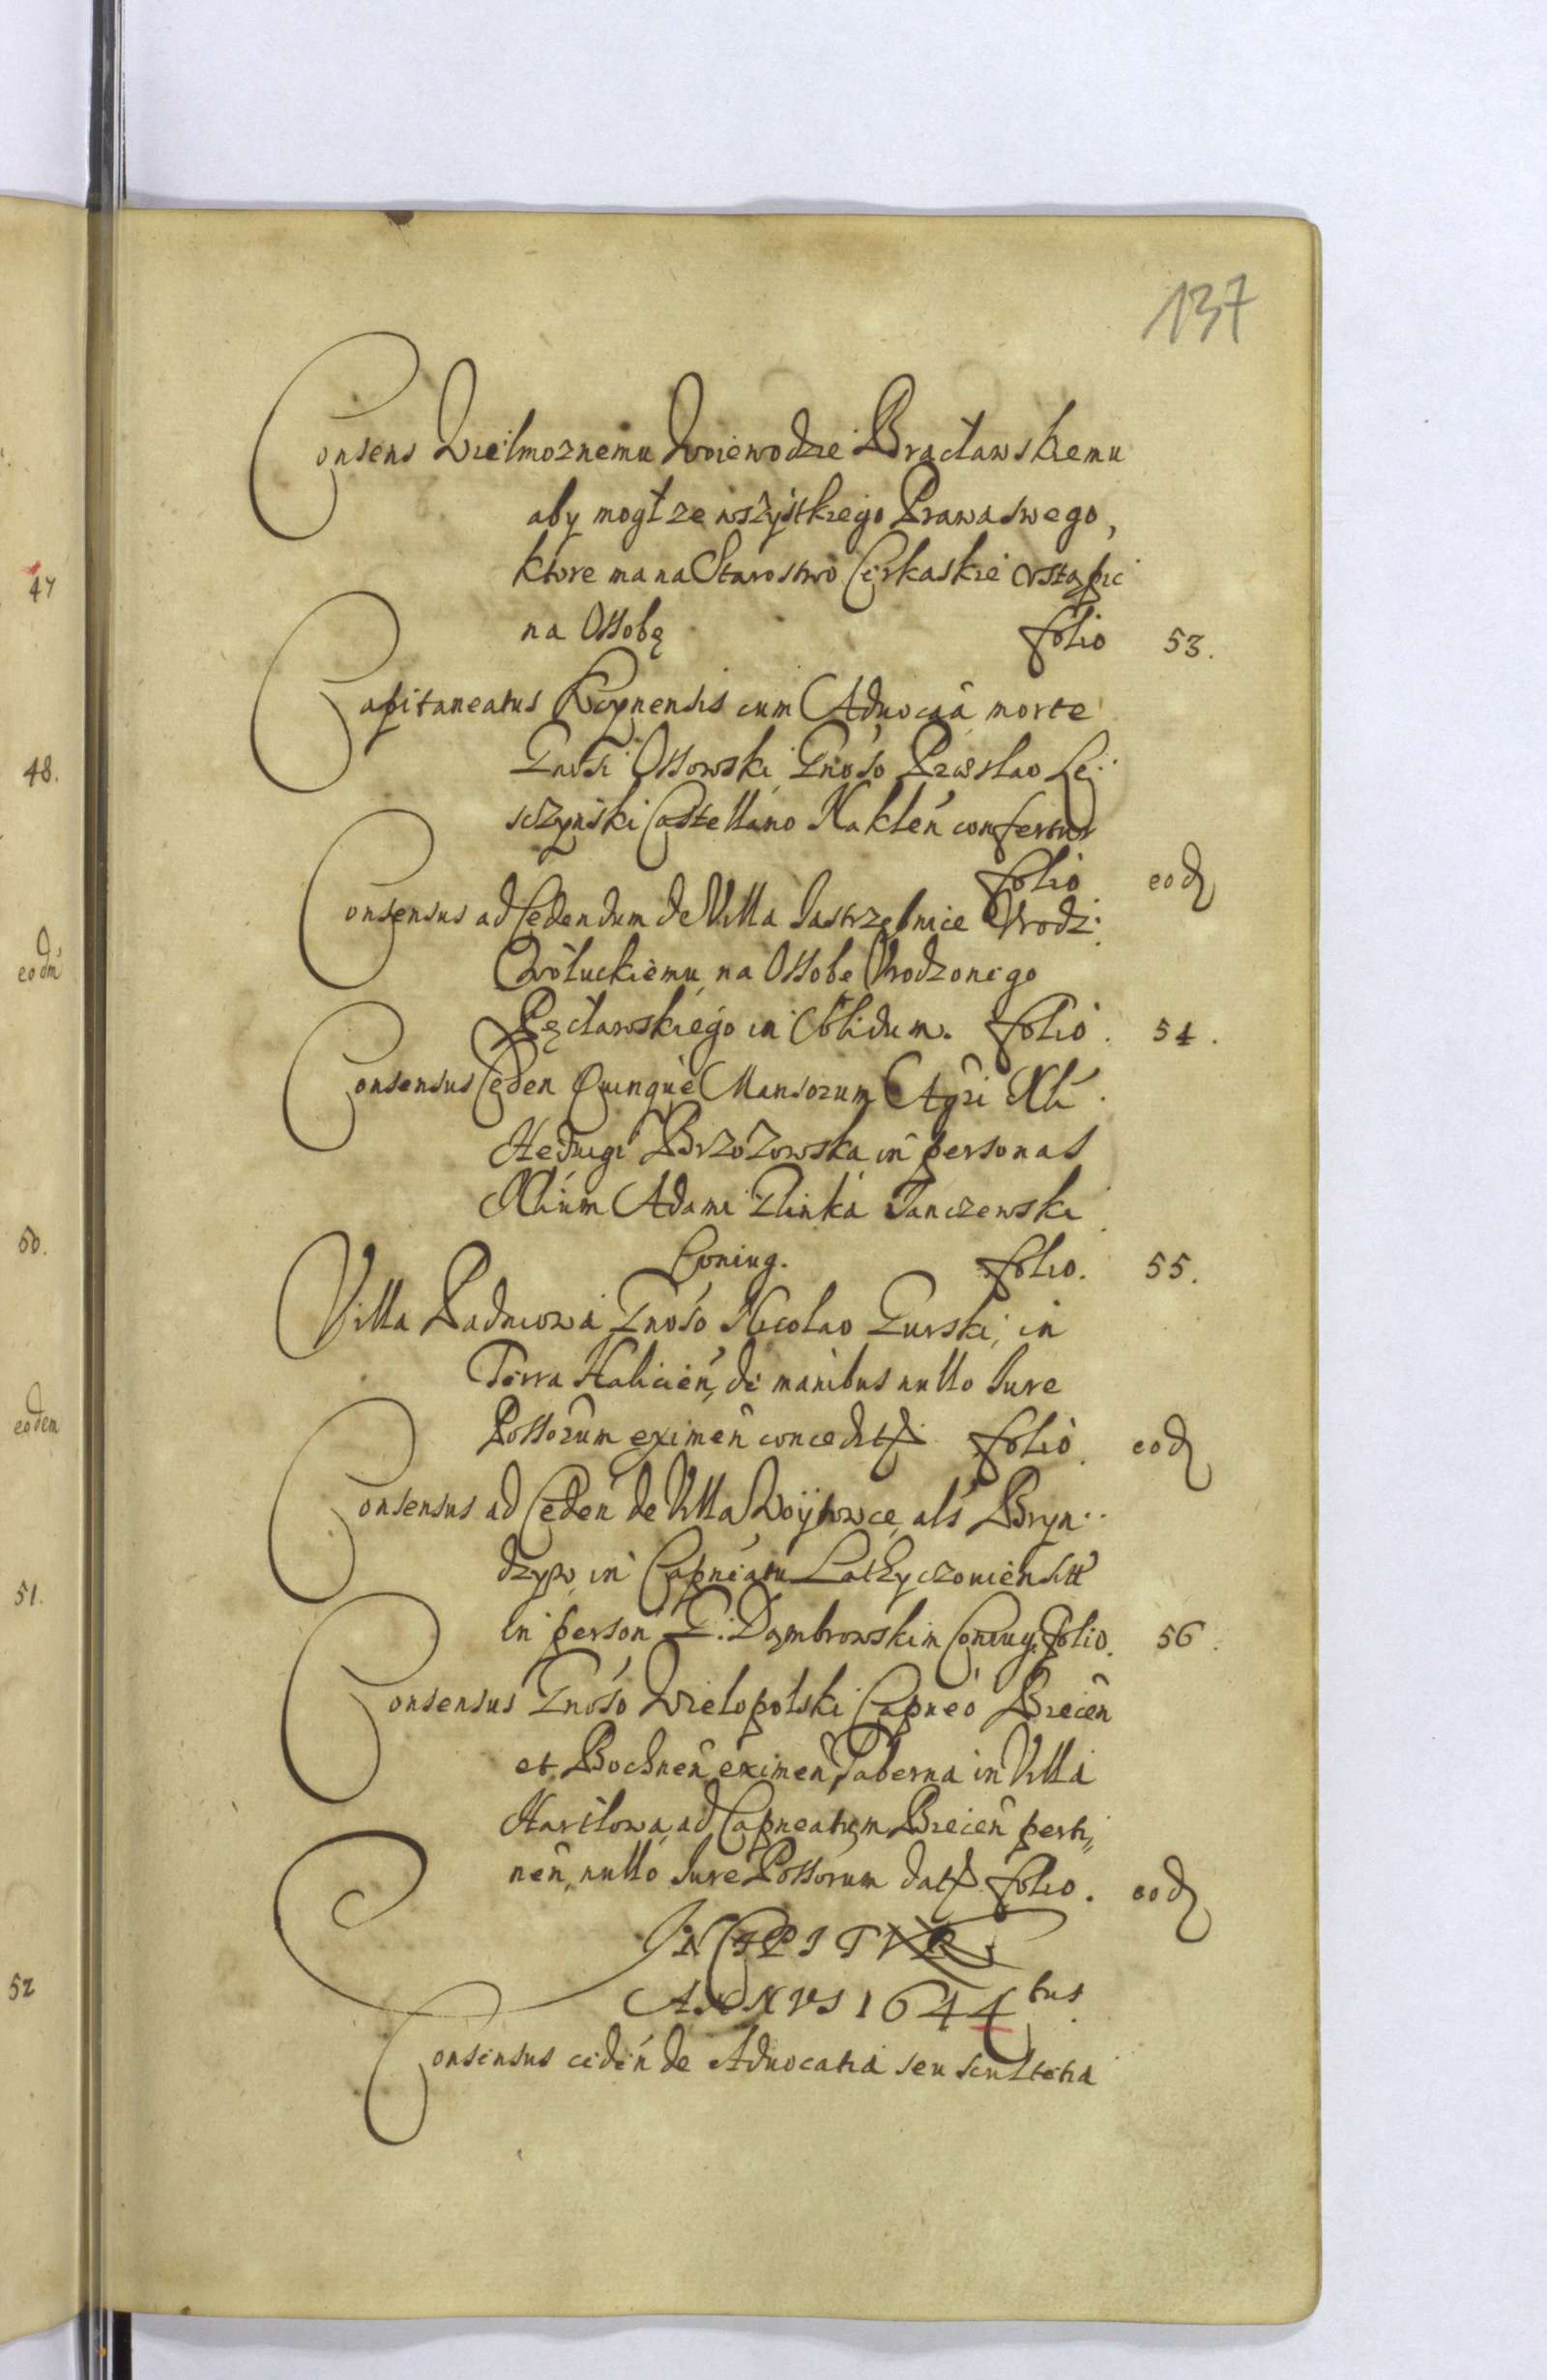 137
Consens Wielmoznemu Woiewodzie Bracławskiemu
aby mogł ze wszystkiego Prawa swego,
ktore ma na Starostwo Cirkaskie vstąpic
na Ossobę folio 53.
Capitaneatus Kcynensis cum Aduocaâ morte
Gnosi Ossowski Gnoso Przeslao Le..
sczynski Castellano Naklen confertur
folio eodʒ
Consensus ad Cedendum de Villa Jastrzębnice Vrodz:
Wołuckiemu na Ossobe Vrodzonego
Pęcławskiego in Solidum. folio. 54.
Consensus Ceden Quinque Mansorum Agri Nli
Hedvigi Brzozowska in personas
Nlium Adami Glinka Janczewski
Coniug. folio. 55.
Villa Ladniowa Gnoso Nicolao Gurski, in
Terra Halicien, de manibus nullo Jure
Possorum eximen conceditʳ folio. eodʒ
Consensus ad Ceden de Villa Woÿtowce als Bryn..
dzyw in Capneatu Latyczouien sitt
in person G. Dąmbrowskim Coniug. folio. 56.
Consensus Gnoso Wielopolski Capneo Biecen
et Bochnen eximen, Taberna in Villa
Harklowa, ad Capneatum Biecen perti,,
nen, nullo Jure Possorum datʳ folio. eodʒ
INCIPITVR
ANNVS 1644tus.
Consensus ceden de Aduocatia seu scultetia
47
48.
eodm
50.
eodem
51.
52